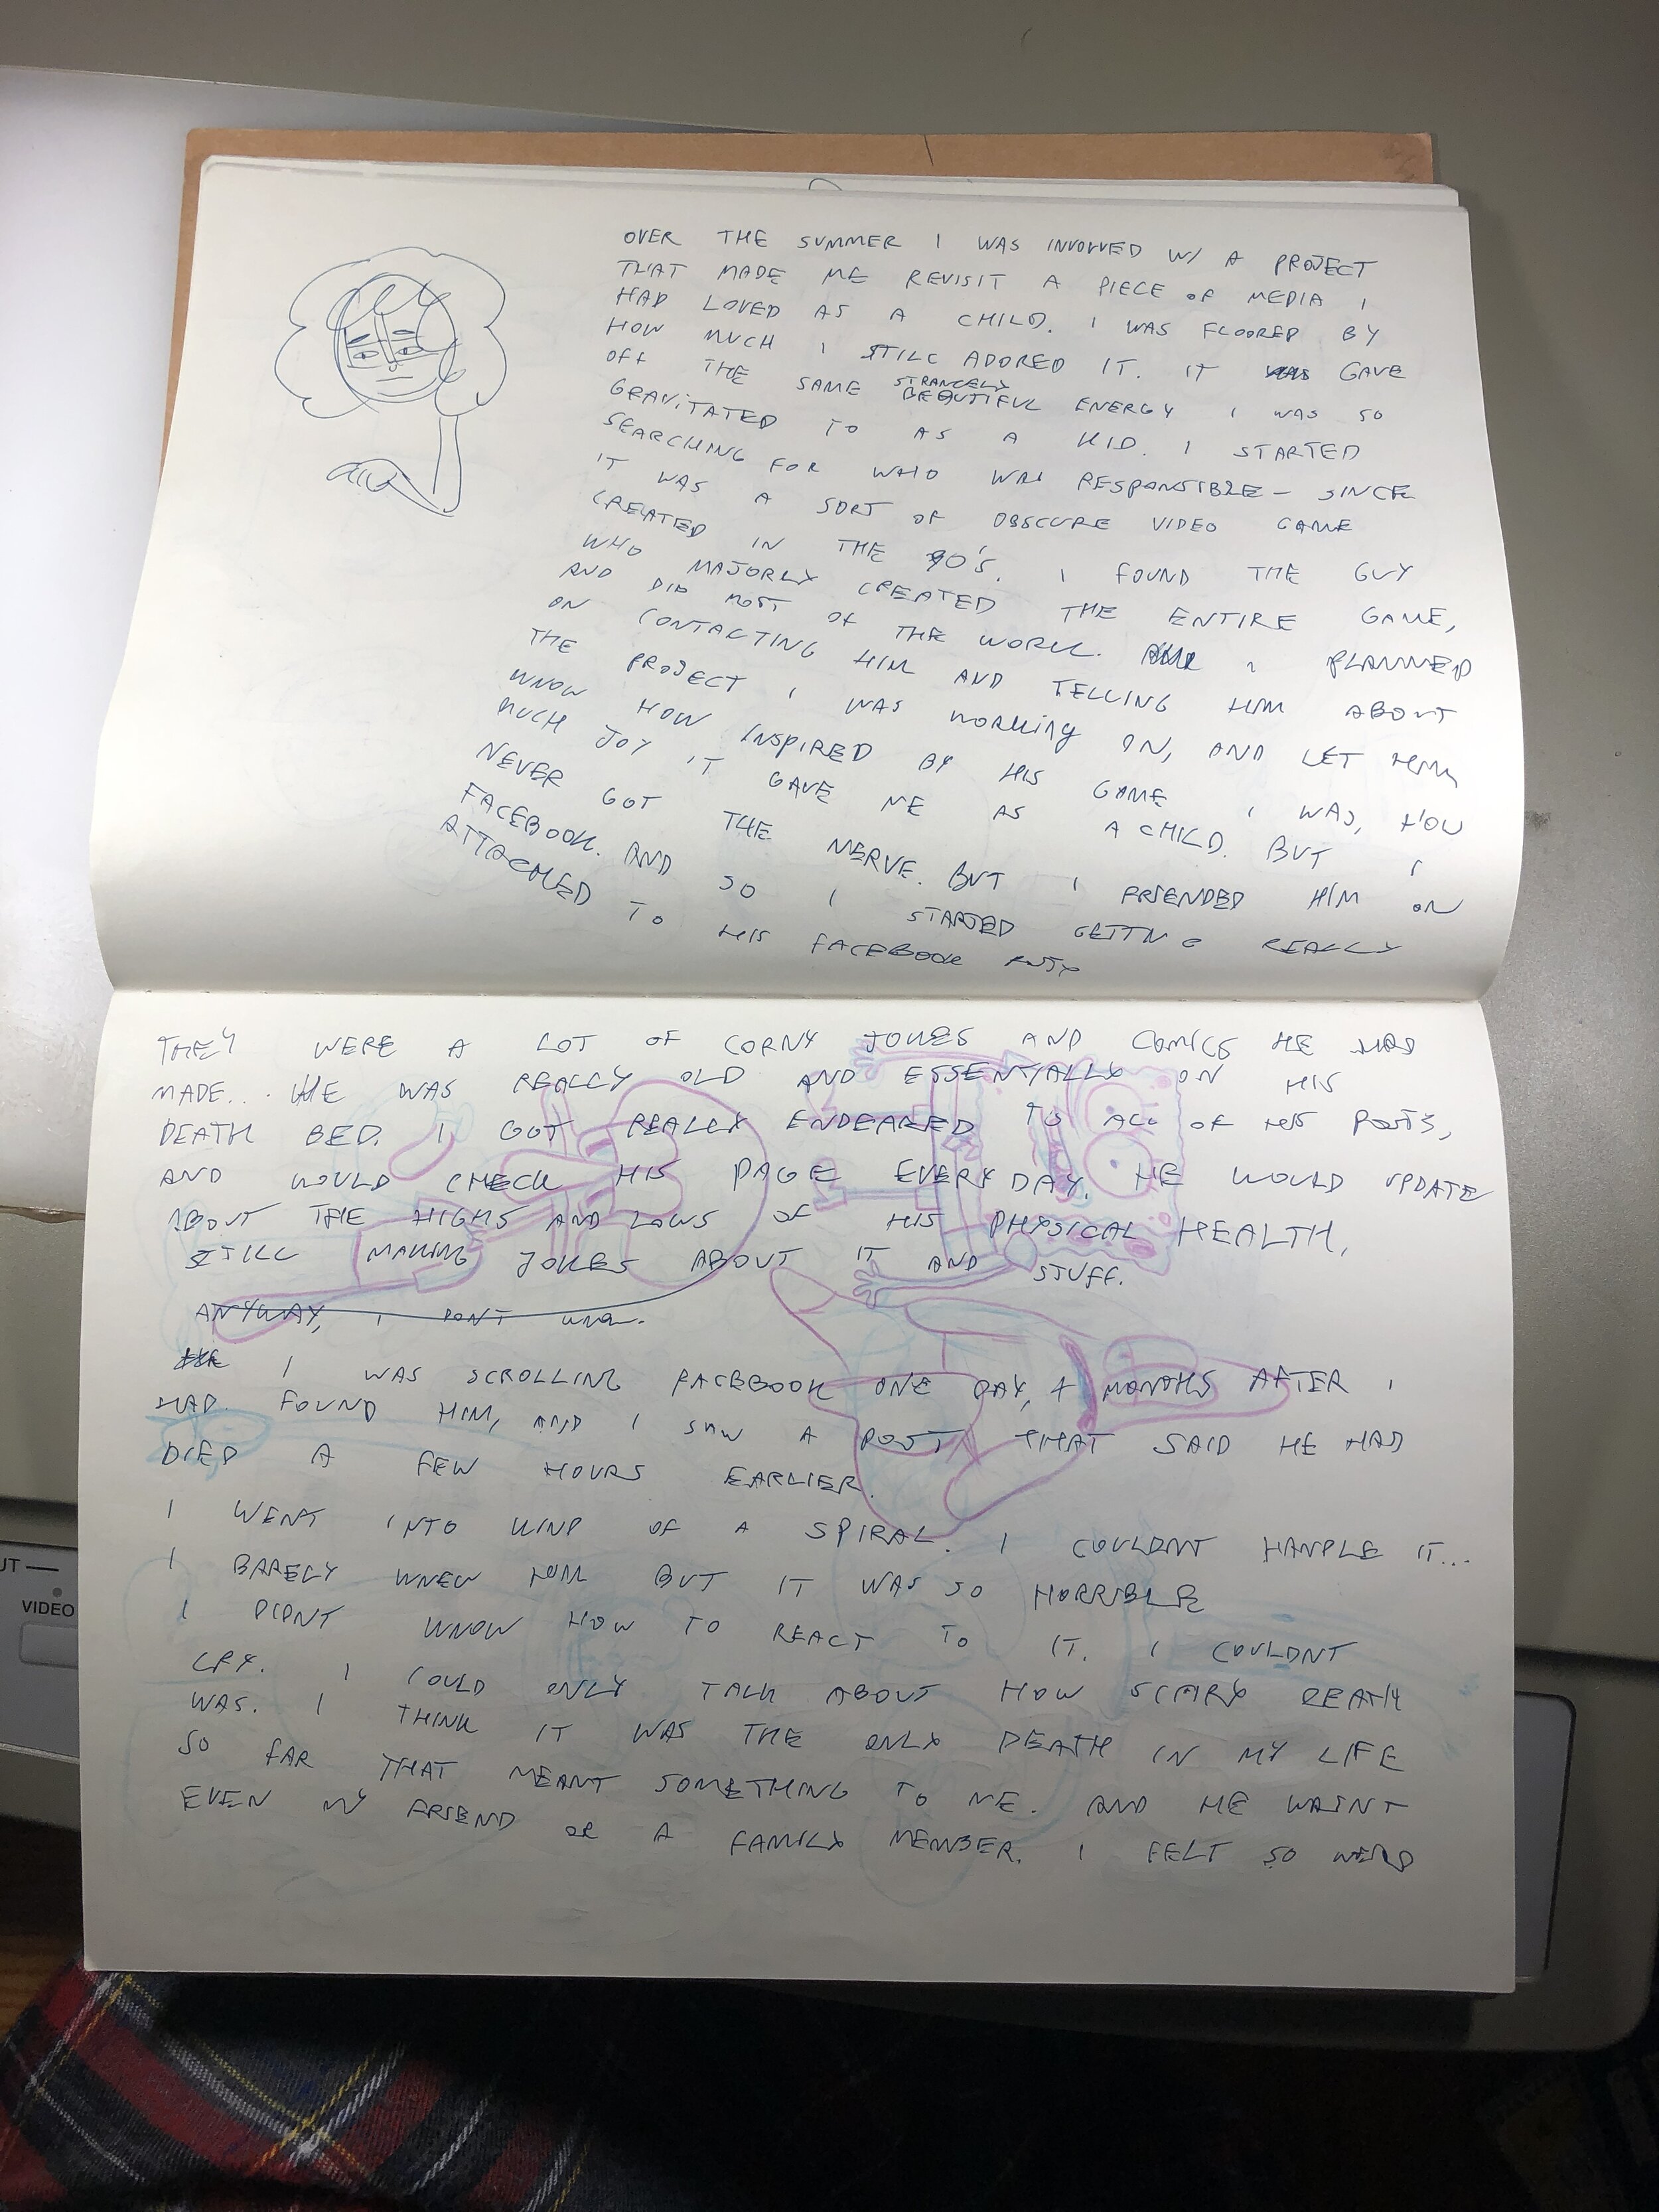 OVER THE SUMMER I WAS INVOLVED W/ A PROJECT
THAT MADE ME REVISIT A PIECE OF MEDIA I
HAD LOVED AS A CHILD. I WAS FLOORED BY
HOW MUCH I STILL ADORED IT. IT WAS GAVE
OFF THE SAME STRANGELY BEAUTIFUL ENERGY I WAS SO
GRAVITATED TO AS A KID. I STARTED
SEARCHING FOR WHO WAS RESPONSIBLE - SINCE
IT WAS A SORT OF OBSCURE VIDEO GAME
CREATED IN THE 90'S. I FOUND THE GUY
WHO MAJORLY CREATED THE ENTIRE GAME,
AND DID MOST OF THE WORK. I PLANNED
ON CONTACTING HIM AND TELLING HIM ABOUT
THE PROJECT I WAS WORKING ON, AND LET HIM
KNOW HOW INSPIRED BY HIS GAME I WAS, HOW
MUCH JOY IT GAVE ME AS A CHILD. BUT I
NEVER GOT THE NERVE. BUT I FRIENDED HIM ON
FACEBOOK. AND SO I STARTED GETTING REALLY
ATTACHED TO HIS FACEBOOK
THEY WERE A LOT OF CORNY JOKES AND COMICS HE HAD
MADE... HE WAS REALLY OLD AND ESSENTIALLY ON HIS
DEATH BED. I GOT REALLY ENDEARED TO ALL OF HIS POSTS,
AND WOULD CHECK HIS PAGE EVERY DAY. HE WOULD UPDATE
ABOUT THE HIGHS AND LOWS OF HIS PHYSICAL HEALTH,
STILL MAKING JOKES ABOUT IT AND STUFF.
ANYWAY, I DONT KNOW.
I WAS SCROLLING FACEBOOK ONE DAY, 4 MONTHS AFTER I
HAD FOUND HIM, AND I SAW A POST THAT SAID HE HAD
DIED A FEW HOURS EARLIER.
I WENT INTO KIND OF A SPIRAL. I COULDNT HANDLE IT...
I BARELY KNEW HIM BUT IT WAS SO HORRIBLE
I DIDNT KNOW HOW TO REACT TO IT. I COULDNT
CRY. I COULD ONLY TALK ABOUT HOW SCARY DEATH
WAS. I THINK IT WAS THE ONLY DEATH IN MY LIFE
SO FAR THAT MEANT SOMETHING TO ME. AND HE WASNT
EVEN MY FRIEND OR A FAMILY MEMBER. I FELT SO WEIRD
UT
VIDEO